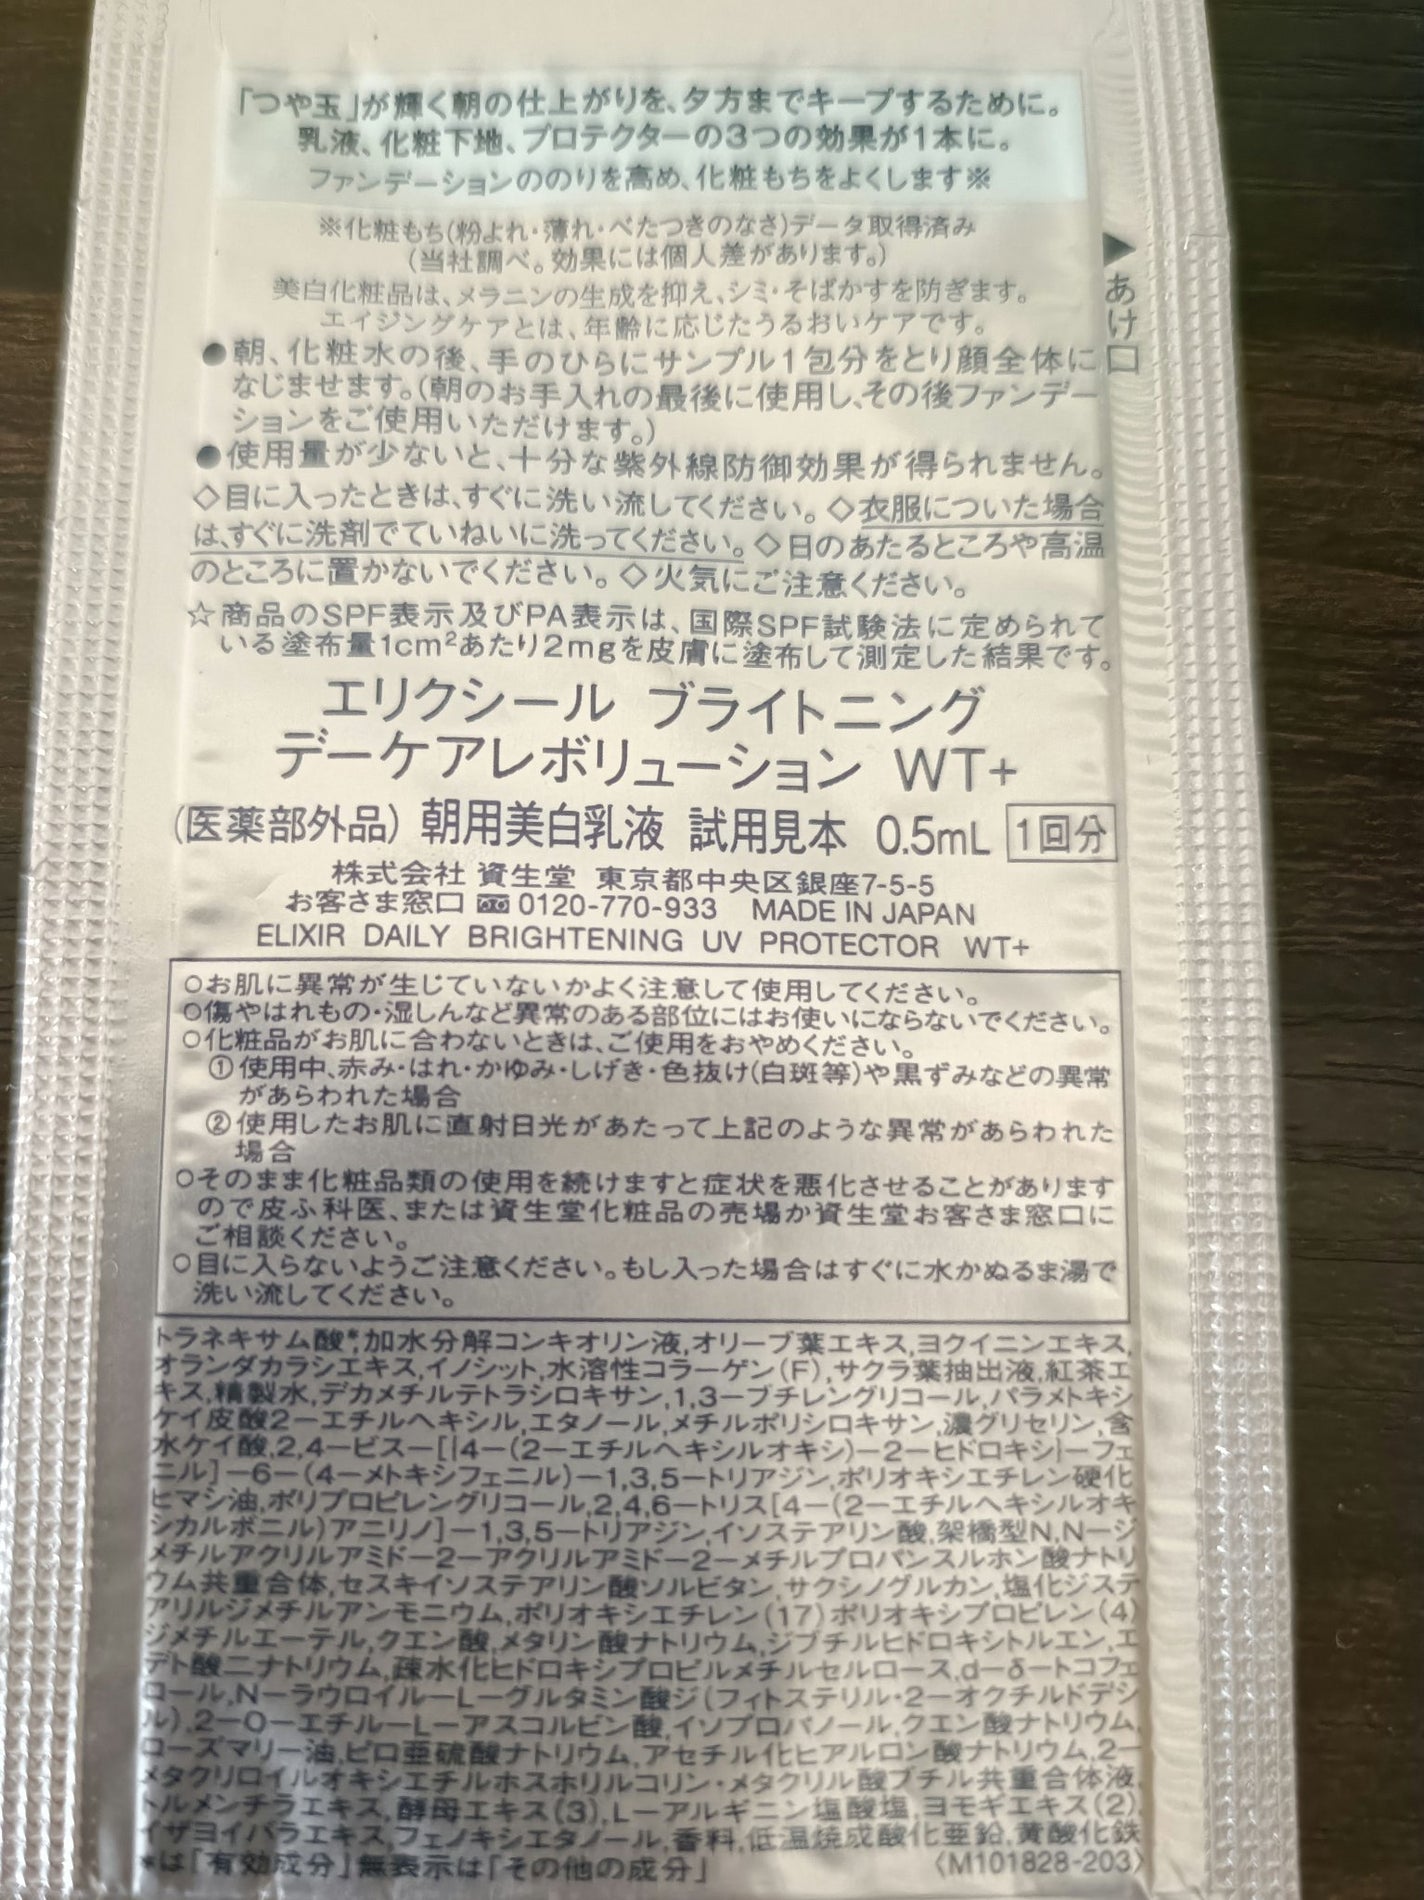 「つや玉」が輝く朝の仕上がりを、夕方までキープするために。
乳液、化粧下地、プロテクターの3つの効果が1本に。
ファンデーションののりを高め、化粧もちをよくします※
※化粧もち(粉よれ・薄れ・べたつきのなさ)データ取得済み
(当社調べ。効果には個人差があります。)
美白化粧品は、メラニンの生成を抑え、シミ・そばかすを防ぎます。
エイジングケアとは、年齢に応じたうるおいケアです。
▶あけ口
●朝、化粧水の後、手のひらにサンプル1包分をとり顔全体に
なじませます。(朝のお手入れの最後に使用し、その後ファンデー
ションをご使用いただけます。)
●使用量が少ないと、十分な紫外線防御効果が得られません。
◇目に入ったときは、すぐに洗い流してください。◇衣服についた場合
は、すぐに洗剤でていねいに洗ってください。◇日のあたるところや高温
のところに置かないでください。◇火気にご注意ください。
☆商品のSPF表示及びPA表示は、国際SPF試験法に定められて
いる塗布量1cm²あたり2mgを皮膚に塗布して測定した結果です。
エリクシール ブライトニング
デーケアレボリューション WT+
(医薬部外品) 朝用美白乳液 試用見本 0.5mL 1回分
株式会社 資生堂 東京都中央区銀座7-5-5
お客さま窓口 0120-770-933 MADE IN JAPAN
ELIXIR DAILY BRIGHTENING UV PROTECTOR WT+
○お肌に異常が生じていないかよく注意して使用してください。
○傷やはれもの・湿しんなど異常のある部位にはお使いにならないでください。
○化粧品がお肌に合わないときは、ご使用をおやめください。
①使用中、赤み・はれ・かゆみ・しげき・色抜け(白斑等)や黒ずみなどの異常
があらわれた場合
②使用したお肌に直射日光があたって上記のような異常があらわれた
場合
○そのまま化粧品類の使用を続けますと症状を悪化させることがあります
ので皮ふ科医、または資生堂化粧品の売場か資生堂お客さま窓口に
ご相談ください。
○目に入らないようご注意ください。もし入った場合はすぐに水かぬるま湯で
洗い流してください。
トラネキサム酸*,加水分解コンキオリン液,オリーブ葉エキス,ヨクイニンエキス,
オランダカラシエキス,イノシット,水溶性コラーゲン(F),サクラ葉抽出液,紅茶エ
キス,精製水,デカメチルテトラシロキサン,1,3ーブチレングリコール,パラメトキシ
ケイ皮酸2ーエチルヘキシル,エタノール,メチルポリシロキサン,濃グリセリン,含
水ケイ酸,2,4ービスー[{4ー(2ーエチルヘキシルオキシ)ー2ーヒドロキシ}ーフェ
ニル]ー6ー(4ーメトキシフェニル)ー1,3,5ートリアジン,ポリオキシエチレン硬化
ヒマシ油,ポリプロピレングリコール,2,4,6ートリス[4ー(2ーエチルヘキシルオキ
シカルボニル)アニリノ]ー1,3,5ートリアジン,イソステアリン酸,架橋型N,Nージ
メチルアクリルアミドー2ーアクリルアミドー2ーメチルプロパンスルホン酸ナトリ
ウム共重合体,セスキイソステアリン酸ソルビタン,サクシノグルカン,塩化ジステ
アリルジメチルアンモニウム,ポリオキシエチレン(17)ポリオキシプロピレン(4)
ジメチルエーテル,クエン酸,メタリン酸ナトリウム,ジブチルヒドロキシトルエン,エ
デト酸二ナトリウム,疎水化ヒドロキシプロピルメチルセルロース,dーδートコフェ
ロール,NーラウロイルーLーグルタミン酸ジ(フィトステリル・2ーオクチルドデシ
ル),2ーOーエチルーLーアスコルビン酸,イソプロパノール,クエン酸ナトリウム,
ローズマリー油,ピロ亜硫酸ナトリウム,アセチル化ヒアルロン酸ナトリウム,2ー
メタクリロイルオキシエチルホスホリルコリン・メタクリル酸ブチル共重合体液,
トルメンチラエキス,酵母エキス(3),Lーアルギニン塩酸塩,ヨモギエキス(2),
イザヨイバラエキス,フェノキシエタノール,香料,低温焼成酸化亜鉛,黄酸化鉄
*は「有効成分」無表示は「その他の成分」 〈M101828-203〉